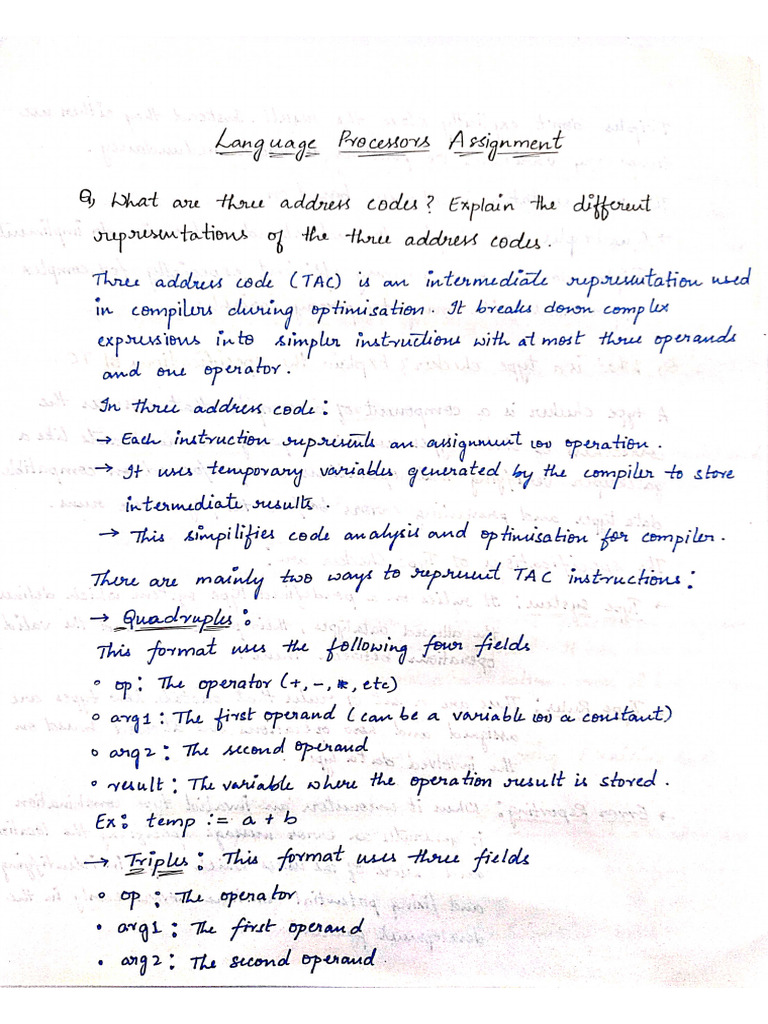 Language Processors Assignment
Q, What are three address codes? Explain the different
representations of the three address codes.
Three address code (TAC) is an intermediate representation used
in compilers during optimisation. It breaks down complex
expressions into simpler instructions with at most three operands
and one operator.
In three address code:
→ Each instruction represents an assignment (or) operation.
→ It uses temporary variables generated by the compiler to store
intermediate results.
→ This simplifies code analysis and optimisation for compiler.
There are mainly two ways to represent TAC instructions:
→ Quadruples:
This format uses the following four fields
• op: The operator (+, -, *, etc)
• arg1: The first operand (can be a variable (or) a constant)
• arg2: The second operand
• result: The variable where the operation result is stored.
Ex: temp := a + b
→ Triples: This format uses three fields
• op: The operator
• arg1: The first operand
• arg2: The second operand